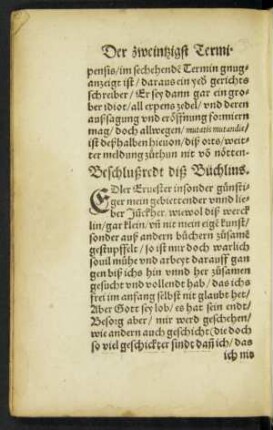 Der zweintzigst Termi-
pensis/im sechehendē Termin gnug-
anzeigt ist/daraus ein yed̄ gerichts
schreiber/Er sey dann gar ein gro-
ber idiot/all expens zedel/vnd deren
aussagung vnd eröffnung formiern
mag/doch allwegen/mutatis mutandis/
ist deßhalben hieuon/diß orts/weit-
ter meldung züthun nit vō nötten.
Beschlußredt diß Büchlins.
EDler Ernester insonder günsti-
ger mein gebiettender vnnd lie-
ber Jückher. wiewol diß werck
lin/gar klein/vñ nit mein eigē kunst/
sonder auß andern büchern züsamē
gestupffelt/so ist mir doch warlich
souil mühe vnd arbeyt darauff gan
gen biß ichs hin vnnd her züsamen
gesucht vnd vollendt hab/das ichs
frei im anfang selbst nit glaubt het/
Aber Gott sey lob/es hat sein endt/
Besorg aber/mir werd geschehen/
wie andern auch geschicht(die doch
so viel geschickter sindt dañ ich/das
ich nis